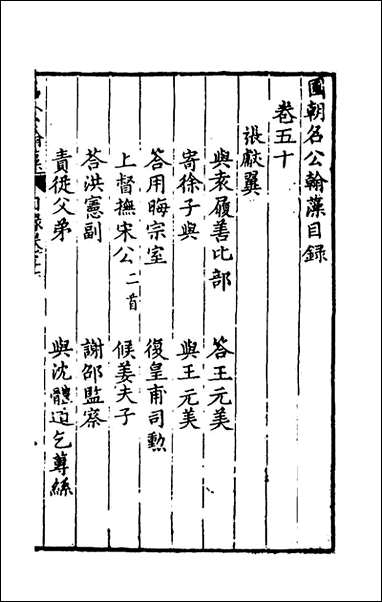 國朝名公翰藻目録
卷五十
張獻翼
與袁履善比部 答王元美
寄徐子與 與王元美
答用晦宗室 復皇甫司勲
上督撫宋公二首 候姜夫子
答洪憲副 謝邵監察
責徒父弟 與沈體道乞蓴絲